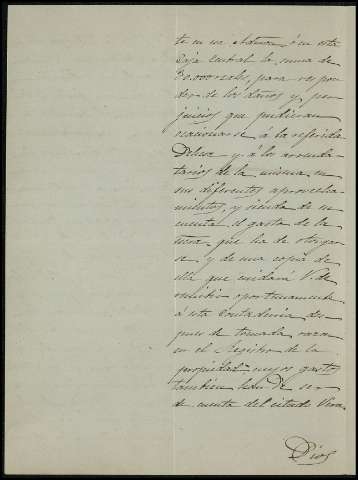 te en su Adma ó en esta
Caja Central la suma de
30.000 reales, para respon
der de los daños y per
juicios que pudieran
ocasionarse á la referida
Dehesa y á los arrenda
tarios de la misma en
sus diferentes aprovecha
mientos, y siendo de su
cuenta el gasto de la
que ha de otorgar
se y de una copia de
ella que cuidará V. de
remitir oportunamente
á esta Contaduria des
pues de tomada razon
en el Registro de la
propiedad cuyos gastos
tambien han de ser
de cuenta del citado Vera.
Dios